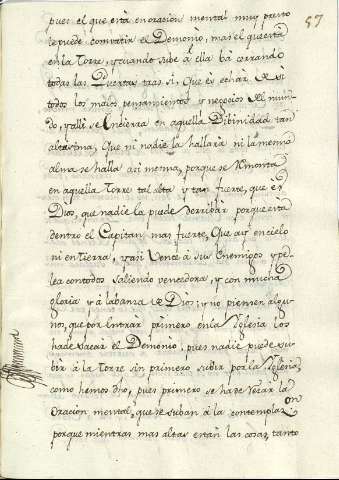 57
pues el que està en oracion mental muy presto
le puede combatir el Demonio, mas el que està
en la Torre, y quando sube à ella bà cerrando
todas las Puertas tras si, Que es echar de si
todos los malos pensamientos y negocios del mun-
do, y alli se encierra en aquella Dibinidad tan
altissima, Que ni nadie la hallarà ni la mesma
alma se halla asi mesma, porque se remonta
en aquella Torre tal alta y tan fuerte, que es
Dios, que nadie la puede derribar porque està
dentro el Capitan mas fuerte, Que ay en cielo
ni en tierra, y asi vence à sus enemigos y pe-
lea con todos saliendo vencedora, y con mucha
gloria y alabanza de Dios; y no piensen algu-
nos, que por entrar primero en la Yglesia los
ha de sacar el Demonio, pues nadie puede su-
bir à la Torre sin primero subir por la Yglesia,
como hemos dho, pues primero se ha de rezar la
Oracion mental, que se suban à la contemplaon
porque mientras mas altas estàn las cosas, tanto